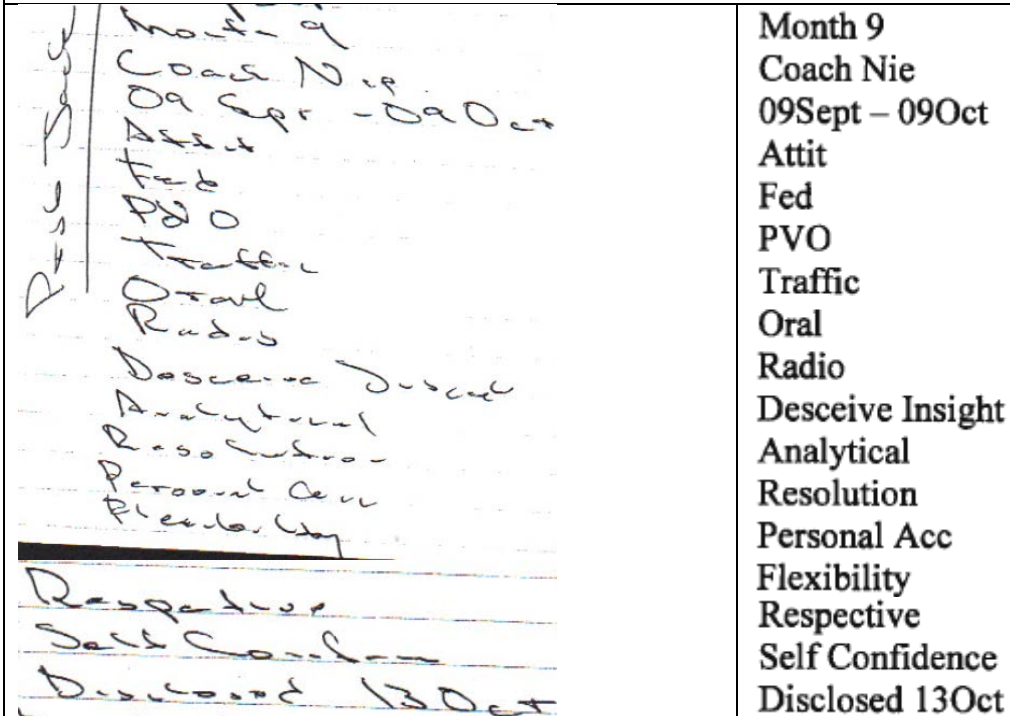 Month 9
Coach Nie
09 Sept - 09 Oct
Attit
Fed
PVO
Traffic
Oral
Radio
Analytical
Resolution
Personal
Flexibility
Respective
Self
Disclosed 13 Oct
Month 9
Coach Nie
09Sept – 09Oct
Attit
Fed
PVO
Traffic
Oral
Radio
Desceive Insight
Analytical
Resolution
Personal Acc
Flexibility
Respective
Self Confidence
Disclosed 13Oct